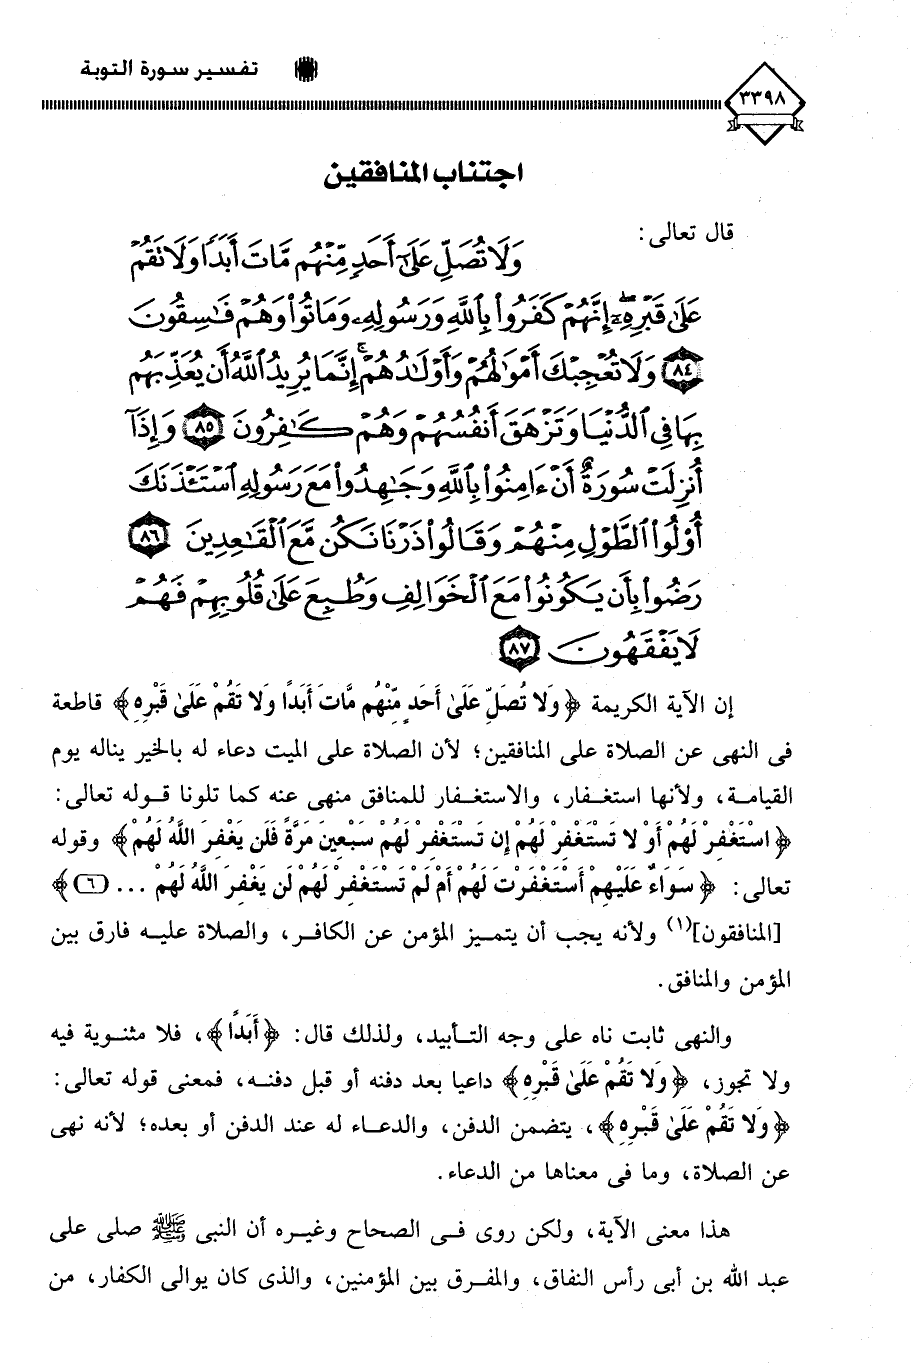 تفسير سورة التوبة
٣٣٩٨
اجتناب المنافقين
قال تعالى:
وَلَا تُصَلِّ عَلَىٰٓ أَحَدٍ مِّنْهُم مَّاتَ أَبَدًا وَلَا تَقُمْ
عَلَىٰ قَبْرِهِۦٓ ۖ إِنَّهُمْ كَفَرُوا۟ بِٱللَّهِ وَرَسُولِهِۦ وَمَاتُوا۟ وَهُمْ فَـٰسِقُونَ
٨٤ وَلَا تُعْجِبْكَ أَمْوَٰلُهُمْ وَأَوْلَـٰدُهُمْ ۚ إِنَّمَا يُرِيدُ ٱللَّهُ أَن يُعَذِّبَهُم
بِهَا فِى ٱلدُّنْيَا وَتَزْهَقَ أَنفُسُهُمْ وَهُمْ كَـٰفِرُونَ ٨٥ وَإِذَآ
أُنزِلَتْ سُورَةٌ أَنْ ءَامِنُوا۟ بِٱللَّهِ وَجَـٰهِدُوا۟ مَعَ رَسُولِهِ ٱسْتَـْٔذَنَكَ
أُو۟لُوا۟ ٱلطَّوْلِ مِنْهُمْ وَقَالُوا۟ ذَرْنَا نَكُن مَّعَ ٱلْقَـٰعِدِينَ ٨٦
رَضُوا۟ بِأَن يَكُونُوا۟ مَعَ ٱلْخَوَالِفِ وَطُبِعَ عَلَىٰ قُلُوبِهِمْ فَهُمْ
لَا يَفْقَهُونَ ٨٧
إن الآية الكريمة ﴿وَلا تُصَلِّ عَلَىٰ أَحَدٍ مِّنْهُم مَّاتَ أَبَدًا وَلا تَقُمْ عَلَىٰ قَبْرِهِ﴾ قاطعة
فى النهى عن الصلاة على المنافقين؛ لأن الصلاة على الميت دعاء له بالخير يناله يوم
القيامة، ولأنها استغفار، والاستغفار للمنافق منهى عنه كما تلونا قوله تعالى:
﴿اسْتَغْفِرْ لَهُمْ أَوْ لا تَسْتَغْفِرْ لَهُمْ إِن تَسْتَغْفِرْ لَهُمْ سَبْعِينَ مَرَّةً فَلَن يَغْفِرَ اللَّهُ لَهُمْ﴾ وقوله
تعالى: ﴿سَوَاءٌ عَلَيْهِمْ أَسْتَغْفَرْتَ لَهُمْ أَمْ لَمْ تَسْتَغْفِرْ لَهُمْ لَن يَغْفِرَ اللَّهُ لَهُمْ ... (٦)﴾
[المنافقون](١) ولأنه يجب أن يتميز المؤمن عن الكافر، والصلاة عليه فارق بين
المؤمن والمنافق.
والنهى ثابت ناه على وجه التأبيد، ولذلك قال: ﴿أَبَدًا﴾، فلا مثنوية فيه
ولا تجوز، ﴿وَلا تَقُمْ عَلَىٰ قَبْرِهِ﴾ داعيا بعد دفنه أو قبل دفنه، فمعنى قوله تعالى:
﴿وَلا تَقُمْ عَلَىٰ قَبْرِهِ﴾، يتضمن الدفن، والدعاء له عند الدفن أو بعده؛ لأنه نهى
عن الصلاة، وما فى معناها من الدعاء.
هذا معنى الآية، ولكن روى فى الصحاح وغيره أن النبى ﷺ صلى على
عبد الله بن أبى رأس النفاق، والمفرق بين المؤمنين، والذى كان يوالى الكفار، من